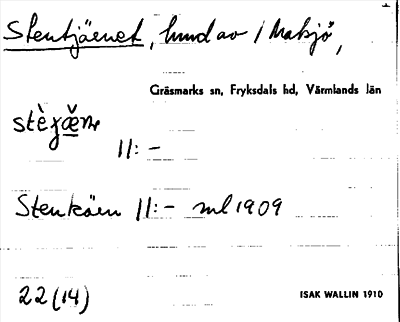 Stentjäenet, hund av / Makjö,
Gräsmarks sn, Fryksdals hd, Värmlands län
11:-
Stenkäen 11:- ml 1909
22 (14)
ISAK WALLIN 1910